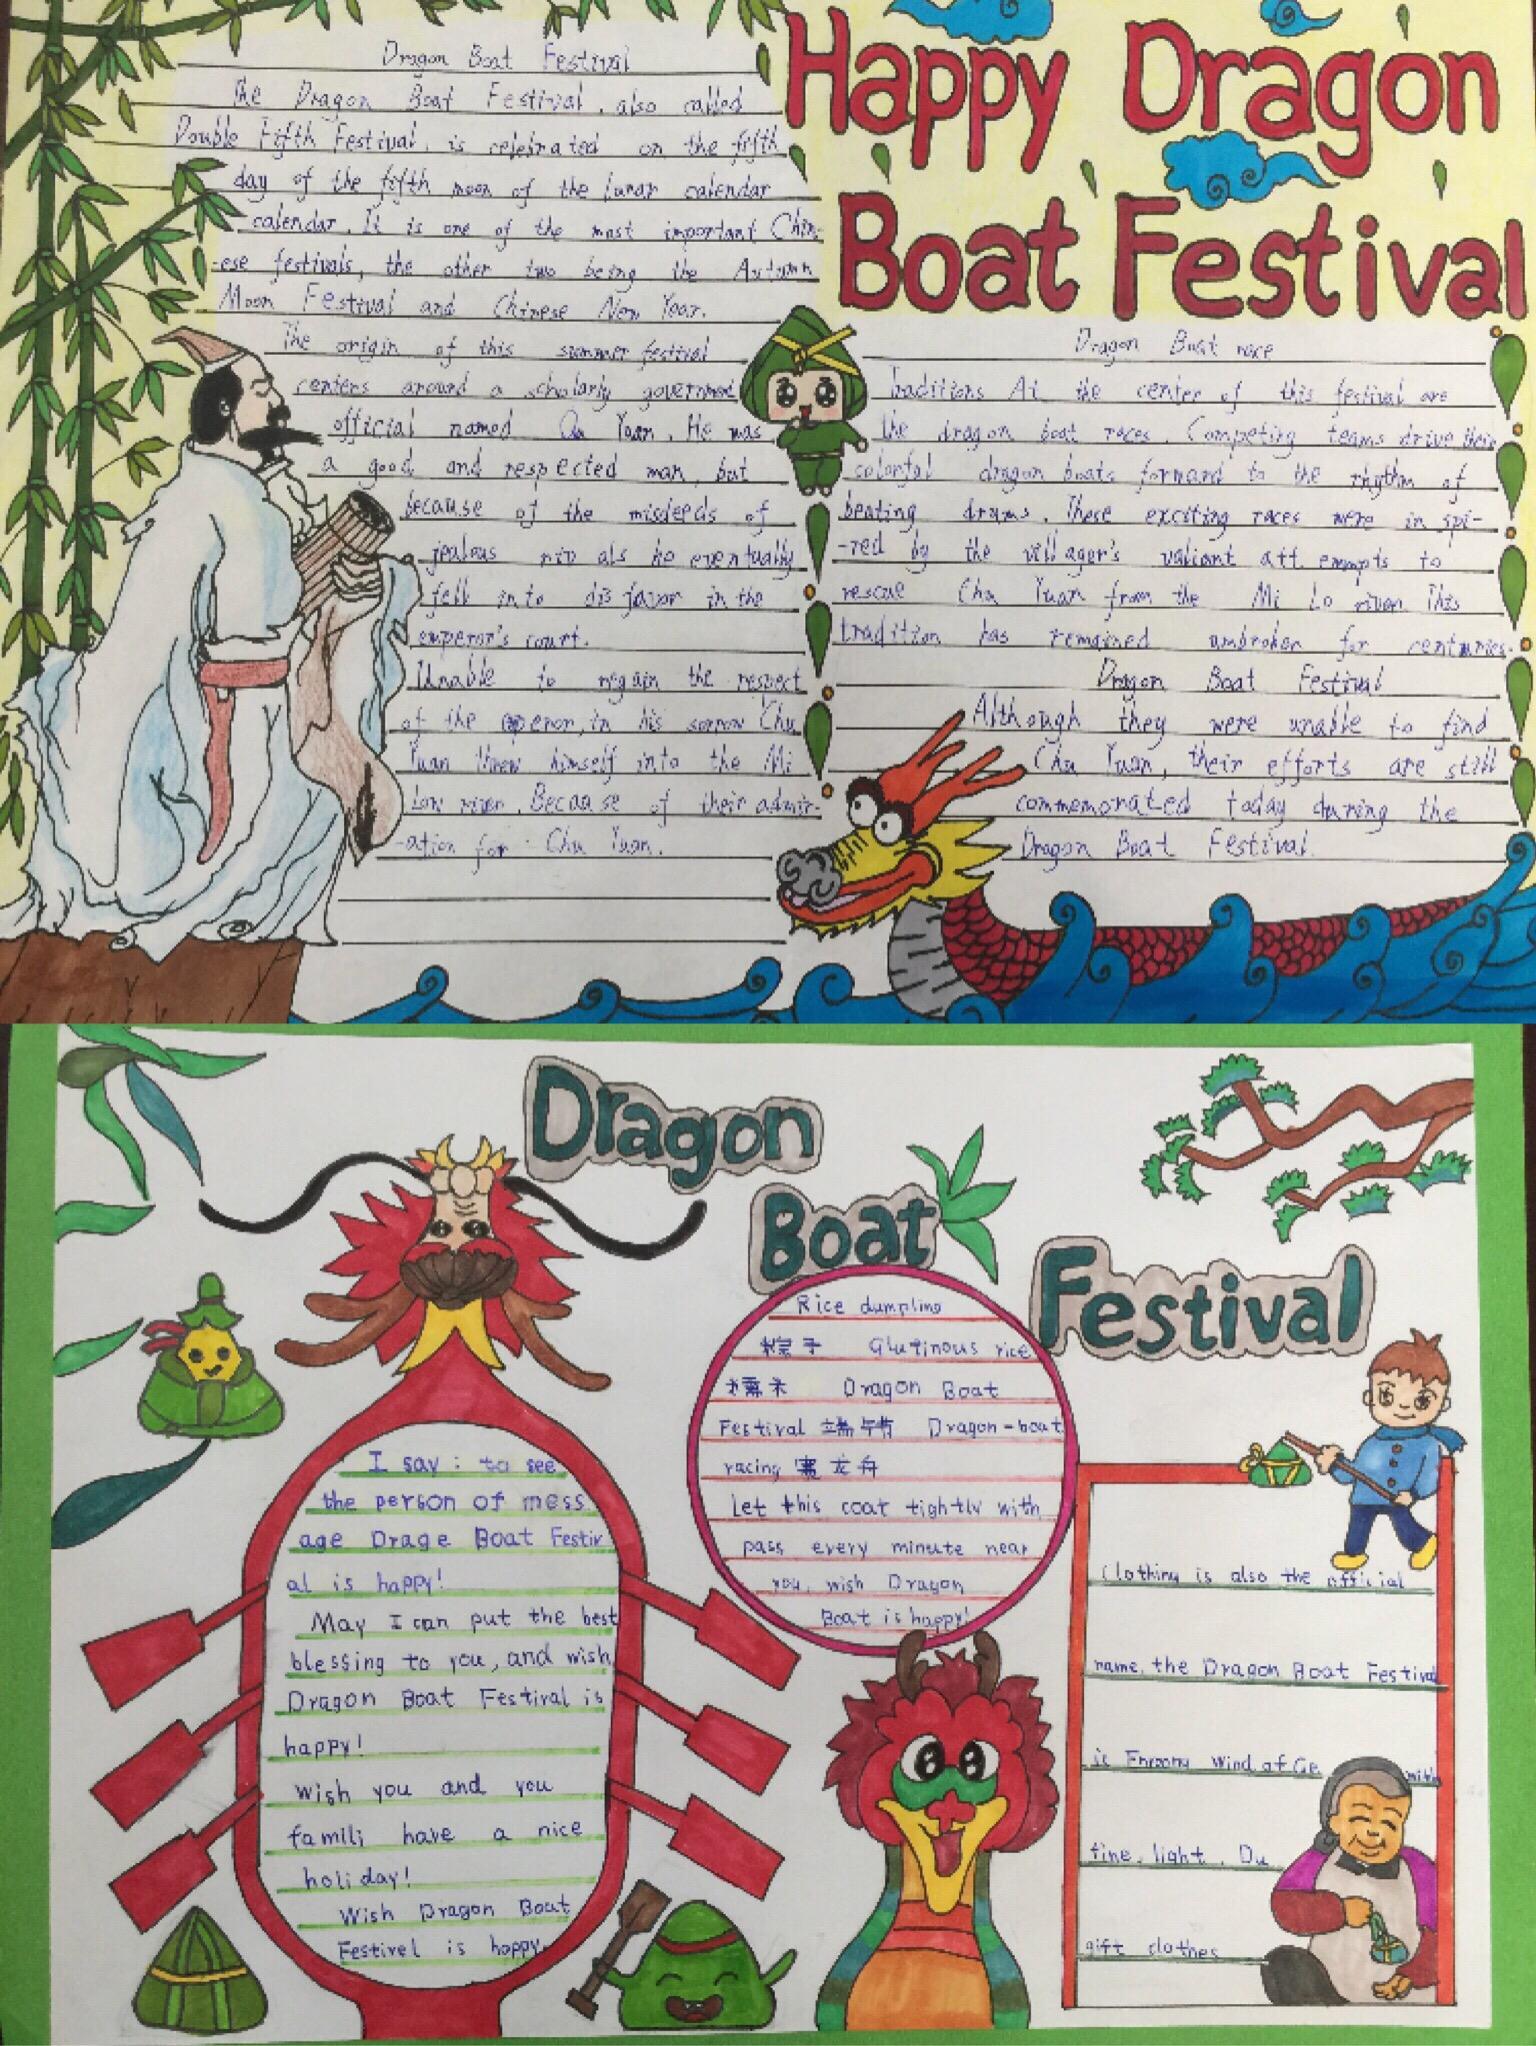 Dragon Boat Festival
The Dragon Boat Festival, also called
Double Fifth Festival, is celebrated on the fifth
day of the fifth moon of the lunar calendar
calendar. It is one of the most important Chin-
-ese festivals, the other two being the Autumn
Moon Festival and Chinese New Year.
The origin of this summer festival
centers around a scholarly government
official named Qu Yuan. He was
a good and respected man, but
because of the misdeeds of
jealous riv als he eventually
fell into disfavor in the
emperor's court.
Unable to regain the respect
of the emperor, in his sorrow Chu
Yuan threw himself into the Mi
Low river. Because of their admir-
-ation for Chu Yuan.
Happy Dragon
Boat Festival
Dragon Boat race
Traditions At the center of this festival are
the dragon boat races. Competing teams drive their
colorful dragon boats forward to the rhythm of
beating drums. These exciting races were in spi-
-red by the villager's valiant att empts to
rescue Chu Yuan from the Mi Lo river. This
tradition has remained unbroken for centuries.
Dragon Boat Festival
Although they were unable to find
Chu Yuan, their efforts are still
commemorated today during the
Dragon Boat Festival.
Dragon
Boat
Festival
I say: to see
the person of mess
age Drage Boat Festiv
al is happy!
May I can put the best
blessing to you, and wish
Dragon Boat Festival is
happy!
Wish you and you
famili have a nice
holiday!
Wish Dragon Boat
Festivel is happy
Rice dumpling
粽子 Glutinous rice
糯米 Dragon Boat
Festival 端午节 Dragon-boat
racing 赛龙舟
Let this coat tightly with
pass every minute near
you, wish Dragon
Boat is happy!
Clothing is also the official
name, the Dragon Boat Festival
is Wind at Ge with
fine, light, Du
gift clothes